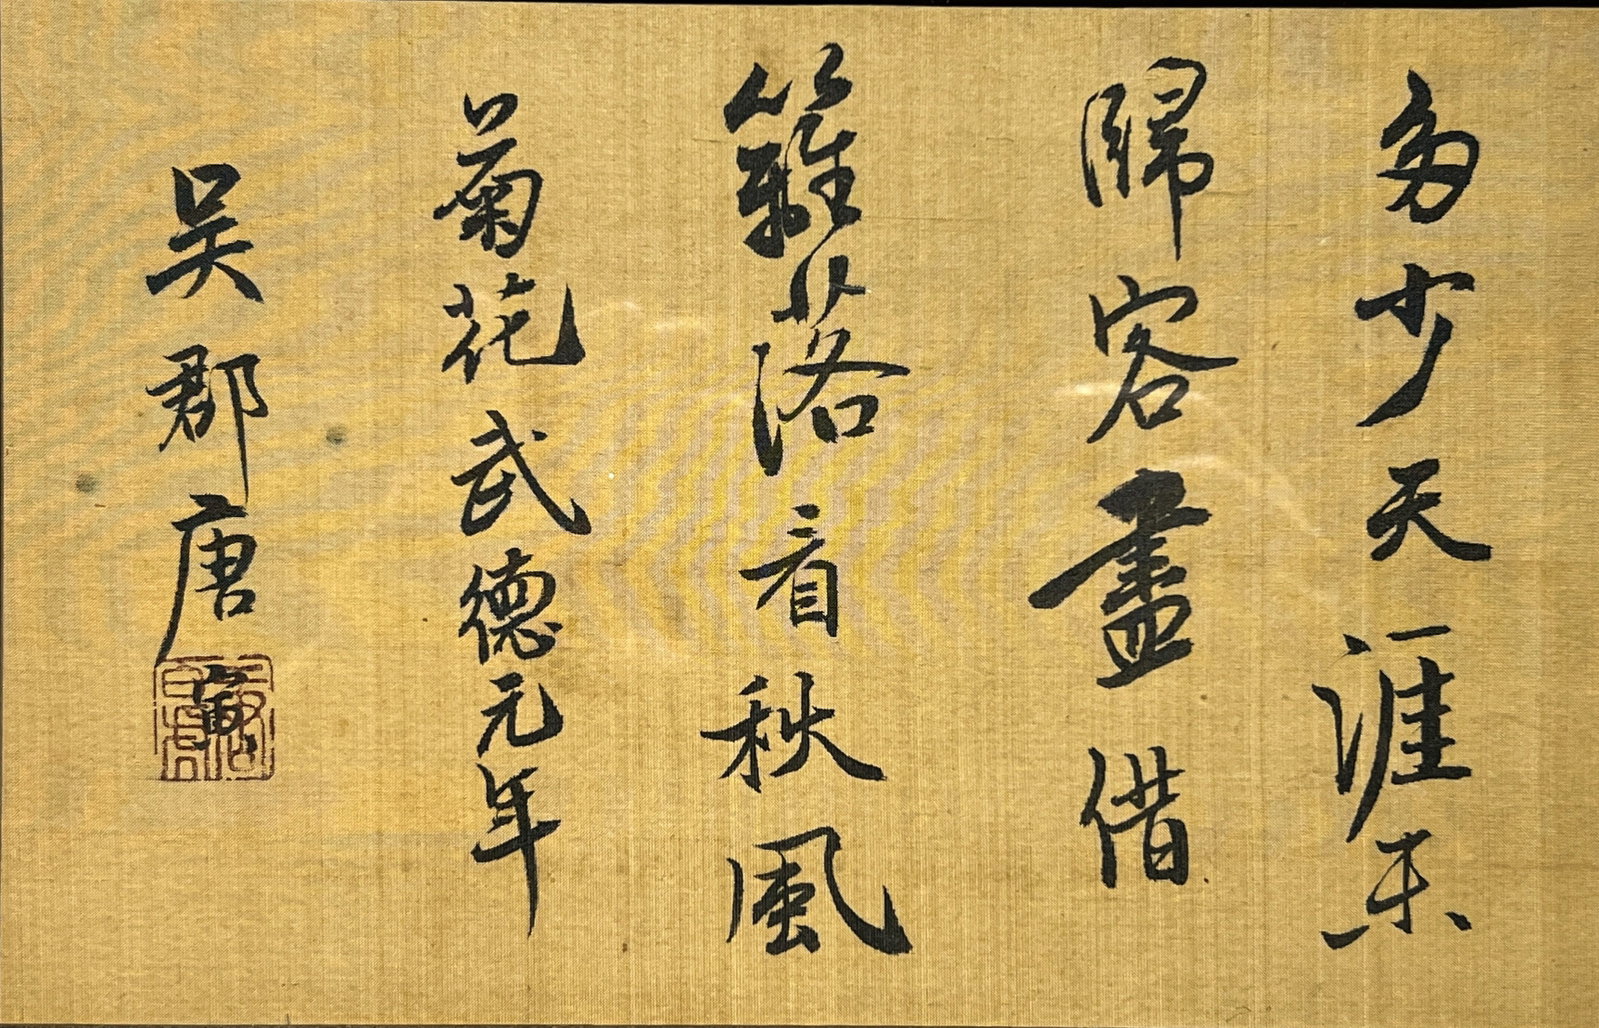 多少天涯未
歸客盡借
籬落看秋風
菊花武德元年
吳郡唐寅